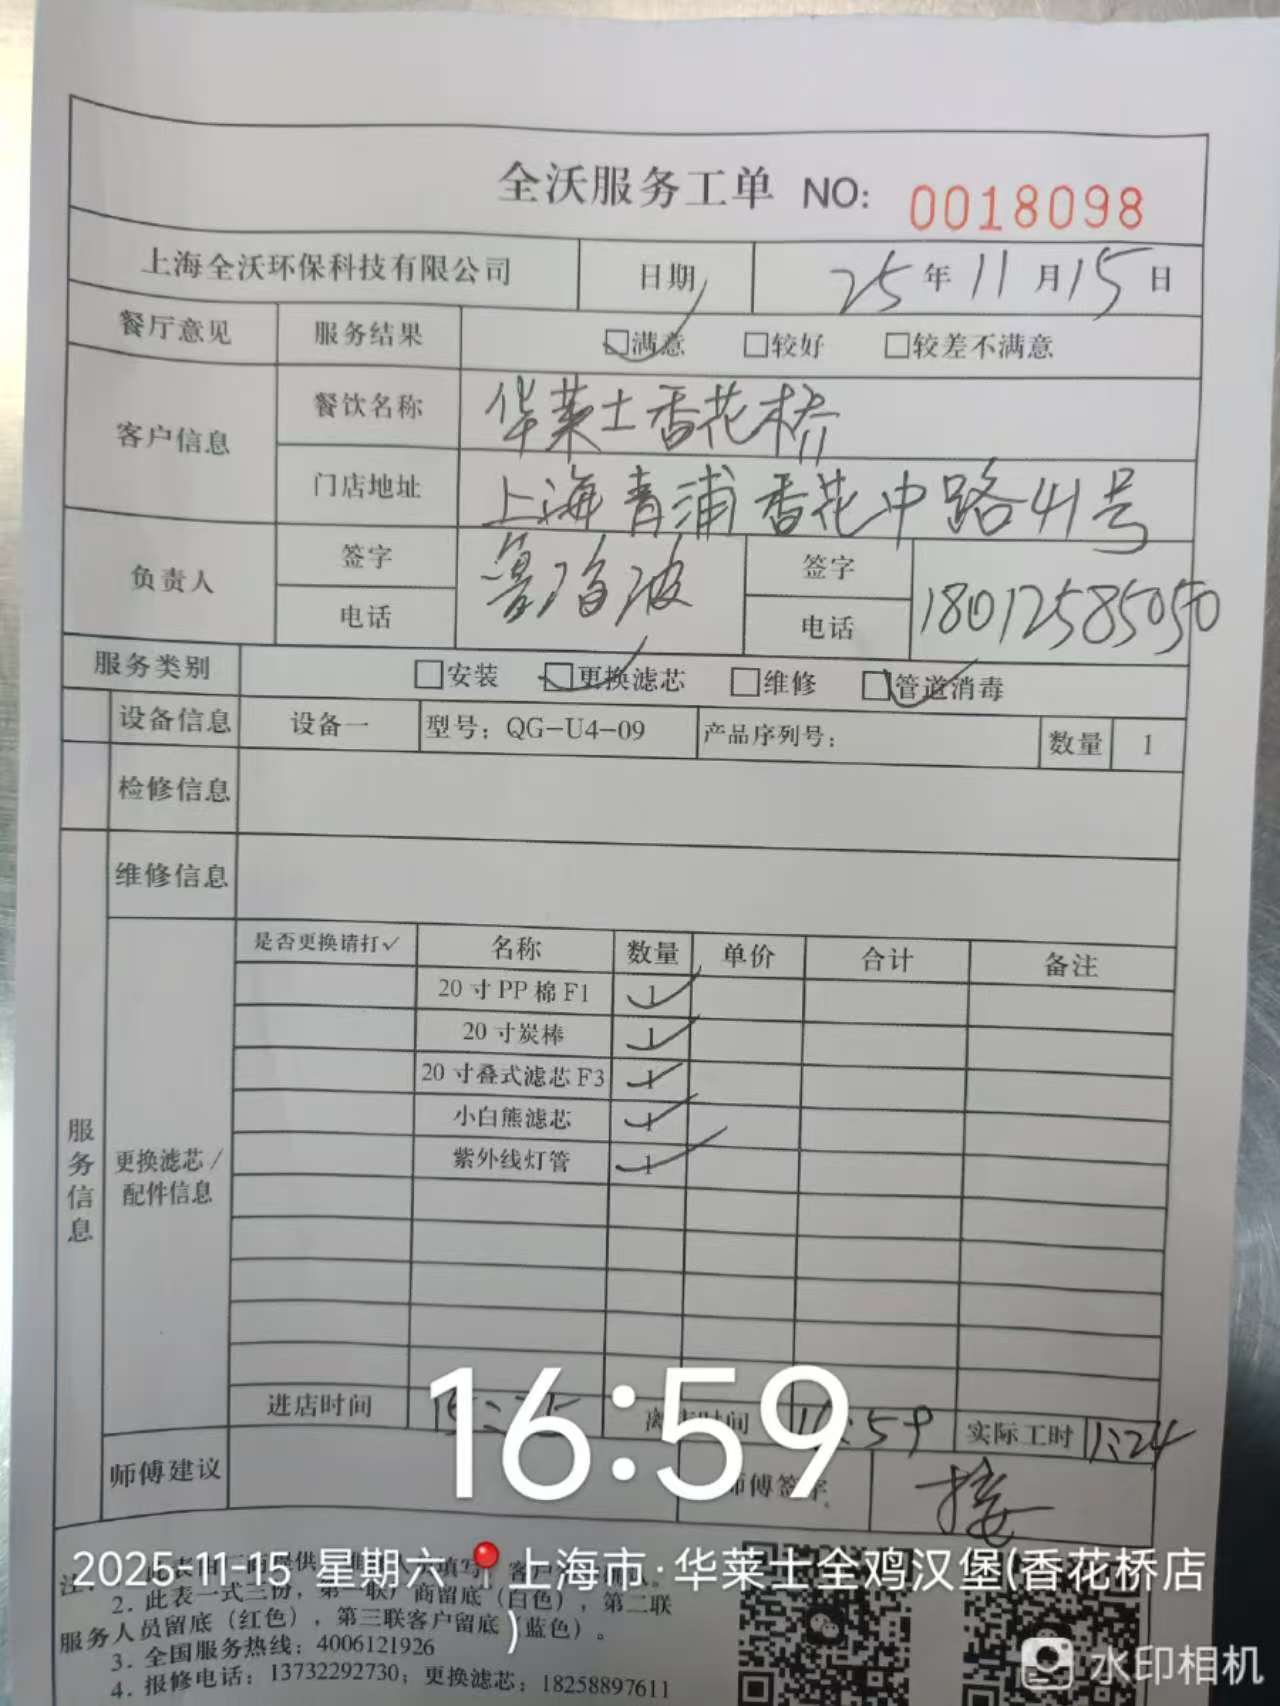 全沃服务工单 NO: 0018098
上海全沃环保科技有限公司 日期 25年11月15日
餐厅意见 服务结果 □满意 □较好 □较差不满意
客户信息 餐饮名称 华莱士香花桥
门店地址 上海青浦香花中路41号
负责人 签字 签字
电话 电话 18012585050
服务类别 □安装 □更换滤芯 □维修 □管道消毒
设备信息 设备一 型号：QG-U4-09 产品序列号： 数量 1
检修信息
维修信息
是否更换请打✓ 名称 数量 单价 合计 备注
20寸PP棉F1 1
20寸炭棒 1
20寸叠式滤芯F3 1
小白熊滤芯 1
紫外线灯管 1
服务信息
更换滤芯/
配件信息
进店时间 离店时间 16:59 实际工时 1:24
师傅建议 师傅签字
16:59
2025-11-15 星期六 上海市·华莱士全鸡汉堡(香花桥店
)
注：
2. 此表一式三份，第一联厂商留底（白色），第二联
服务人员留底（红色），第三联客户留底（蓝色）。
3. 全国服务热线：4006121926
4. 报修电话：13732292730；更换滤芯：18258897611
水印相机